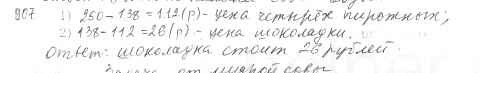 907 1) 250-138=112(р)- цена четырёх пирожных;
2) 138-112=26(р)- цена шоколадки.
Ответ: шоколадка стоит 26 рублей.
от мудрой совы